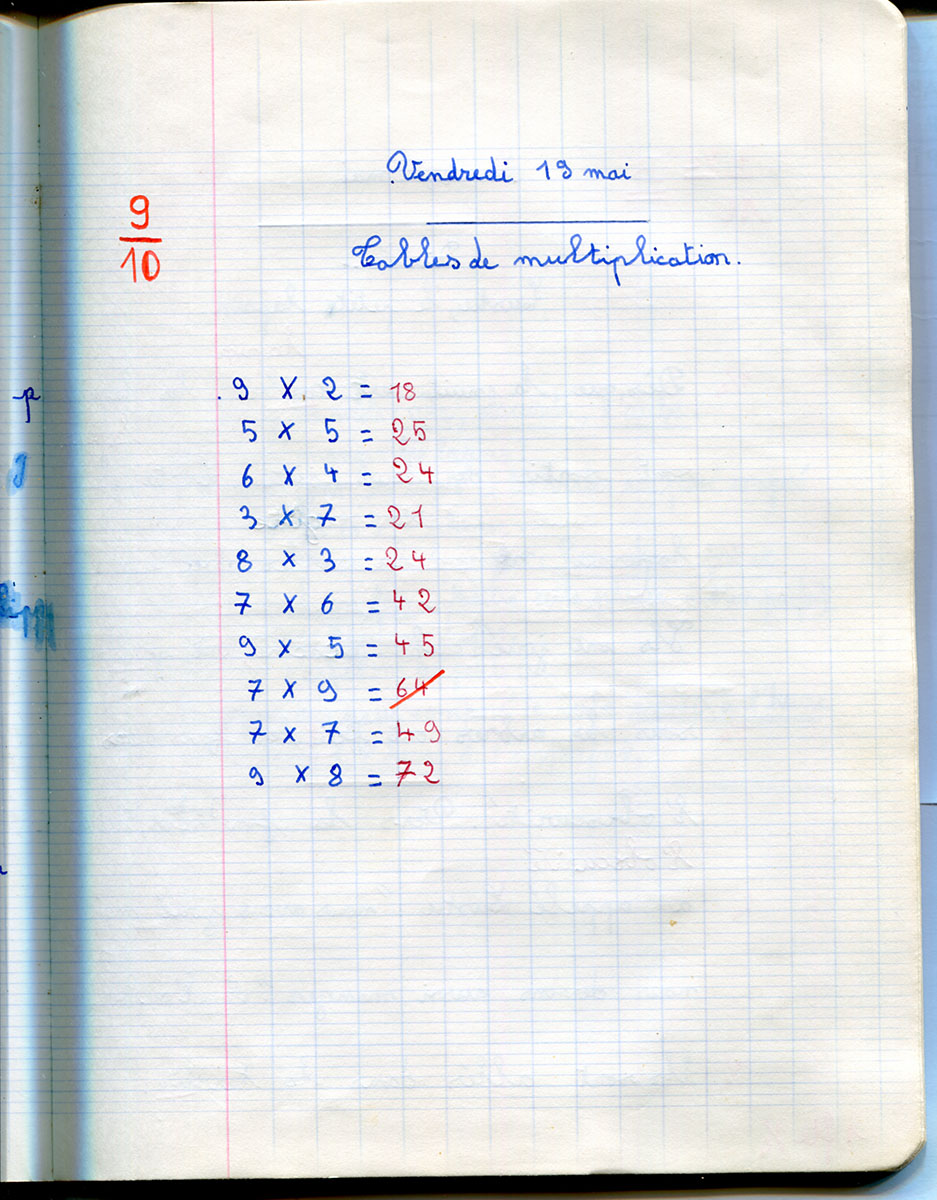 Vendredi 19 mai
9
10
Tables de multiplication.
9 x 2 = 18
5 x 5 = 25
6 x 4 = 24
3 x 7 = 21
8 x 3 = 24
7 x 6 = 42
9 x 5 = 45
7 x 9 = 64
7 x 7 = 49
9 x 8 = 72
p